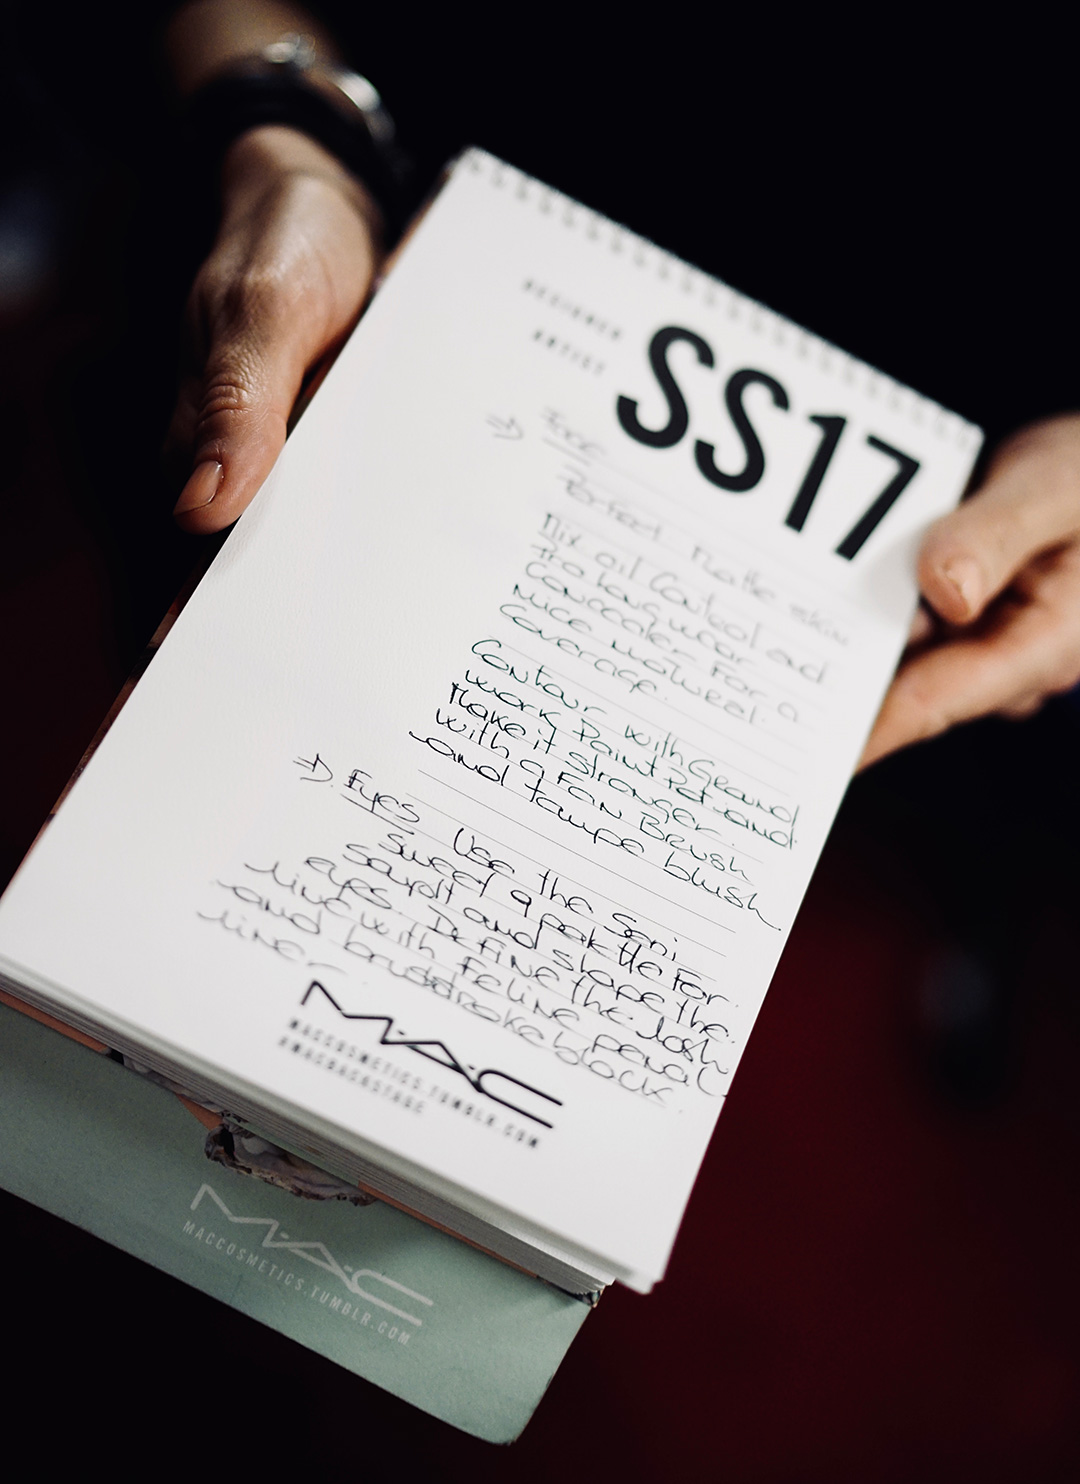 DESIGNER
ARTIST
SS17
⇒ Face
Perfect Matte skin
Mix oil Control and
Pro Longwear
Concealer For a
Nice natureel
Coverage.
Contour with Ground
work Paint Pot and
Make it stronger
with a Fan Brush
and taupe blush
⇒ Eyes Use the Semi
Sweet qpalette For
sculpt and shape the
eyes. Define the lash
line with Feline pencil
and brushstroke black
liner
MAC
MACCOSMETICS.TUMBLR.COM
#MACBACKSTAGE
MAC
MACCOSMETICS.TUMBLR.COM